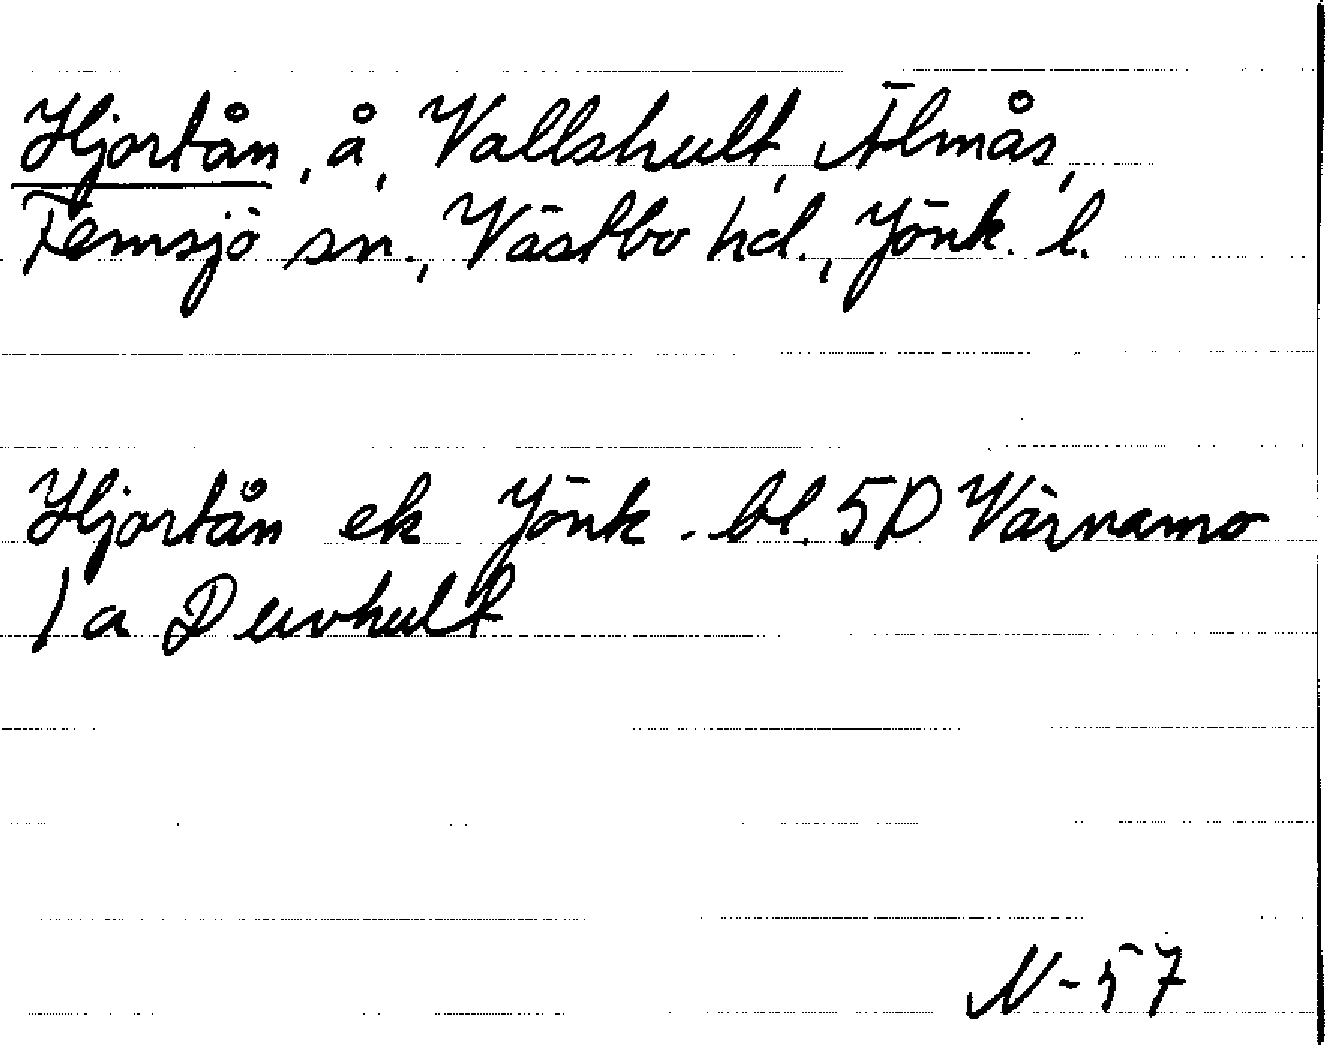 Hjortån, å, Vallshult, Älmås,
Femsjö sn., Västbo hd., Jönk. l.
Hjortån ek Jönk. bl. 5D Värnamo
1 a Duvhult
N-57